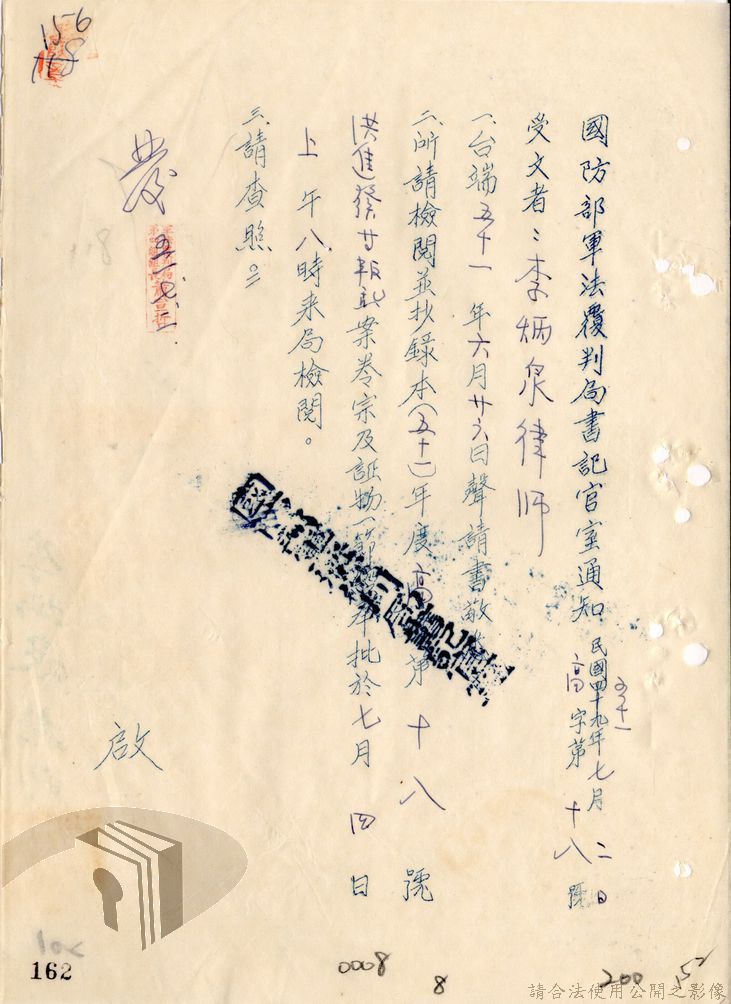 國防部軍法覆判局書記官室通知
民國四十九年七月二日
五十一
高字第十八號
受文者：李炳泉律師
一、台端五十一年六月廿六日聲請書敬悉
二、所請檢閱並抄錄本(五十一)年度高 第十八號
洪進發 報 案卷宗及証物一節 奉批於七月四日
上午八時來局檢閱。
三、請查照。
國防部軍法覆判局書記官室
啟
發
五一、七、二
156
168
162
0008
8
200
52
請合法使用公開之影像